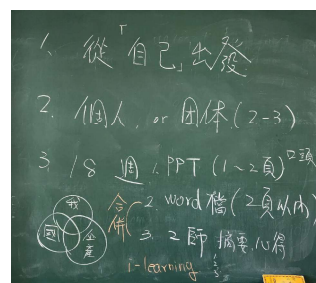 1、從「自己」出發
2. 個人, or 团体.(2-3)
3. 18 週 1. PPT (1~2頁) 口頭
2. word檔(2頁以內)
3. 2師 摘要心得
合併
我
國
企
產
i-learning
1
2
3